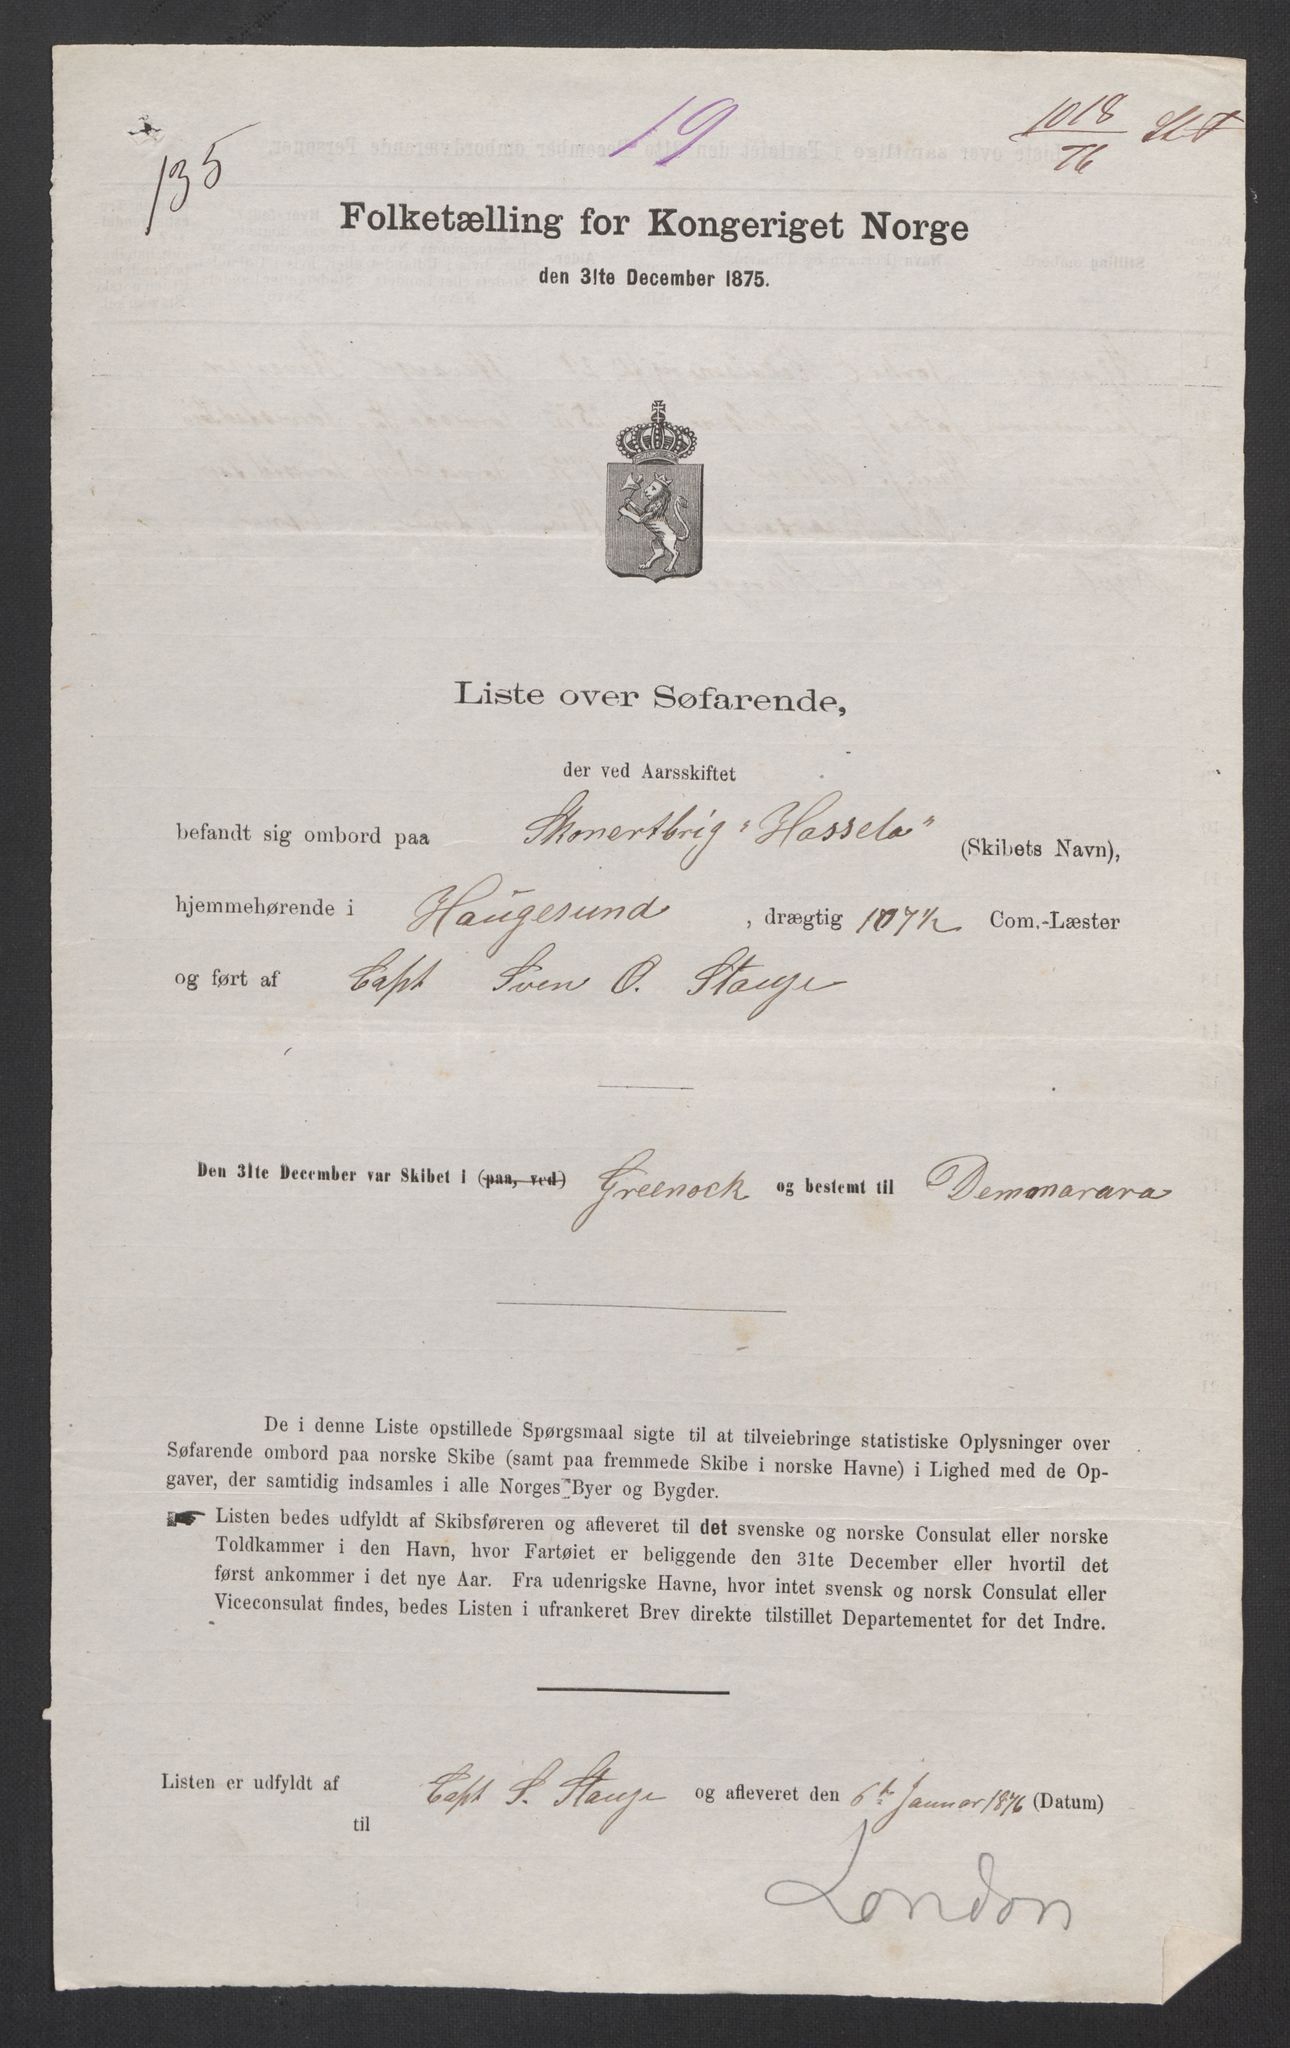 135
19
1018
76
Folketælling for Kongeriget Norge
den 31te December 1875.
Liste over Søfarende,
der ved Aarsskiftet
befandt sig ombord paa Skonertbrig "Hassela" (Skibets Navn),
hjemmehørende i Haugesund, drægtig 107½ Com.-Læster
og ført af Capt Sven O. Stange
Den 31te December var Skibet i (paa, ved) Greenock og bestemt til Demmarara
De i denne Liste opstillede Spørgsmaal sigte til at tilveiebringe statistiske Oplysninger over
Søfarende ombord paa norske Skibe (samt paa fremmede Skibe i norske Havne) i Lighed med de Op-
gaver, der samtidig indsamles i alle Norges Byer og Bygder.
☛ Listen bedes udfyldt af Skibsføreren og afleveret til det svenske og norske Consulat eller norske
Toldkammer i den Havn, hvor Fartøiet er beliggende den 31te December eller hvortil det
først ankommer i det nye Aar. Fra udenrigske Havne, hvor intet svensk og norsk Consulat eller
Viceconsulat findes, bedes Listen i ufrankeret Brev direkte tilstillet Departementet for det Indre.
Listen er udfyldt af Capt S. Stange og afleveret den 6te Januar 1876 (Datum)
til
London